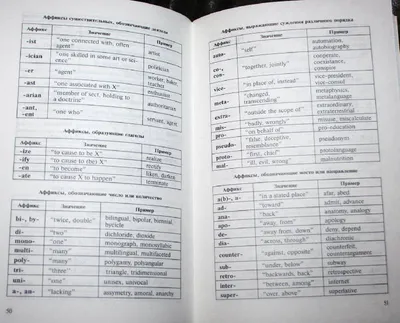 Аффиксы существительных, обозначающие деятеля
Аффикс Значение Пример
-ist "one connected with, often agent" artist
-ician "one skilled in some art or science"
-er "agent" worker, baker, teacher
-ast "one associated with X"
-arian "member of sect, holding to a doctrine"
-ant, -ent "one who" servant, agent
Аффиксы, образующие глаголы
Аффикс Значение Пример
-ize "to cause to be X" realize
-ify "to cause to (be) X" rectify
-en "to become" liken, darken
-ate "to cause X to happen" terminate
Аффиксы, обозначающие число или количество
Аффикс Значение Пример
bi-, by- "twice, double" bilingual, bipolar, biennial, bicycle
di- "two" dichloride, dioxide
mono- "one" monograph, monosyllabic
multi- "many" multilingual, multifaceted
poly- "many" polygamy, polyandry
tri- "three" triangle, tridimensional
uni- "one" unisex, unvocal
a-, an- "lacking" asymmetry, amoral, anarchy
50
Аффикс Значение Пример
auto- "self" automation, autobiography
co-, con- "together, jointly" cooperate, coexistence, conspire
vice- "in place of, instead" vice-president, vice-consul
meta- "changed, transcending" metaphysics, metalanguage
extra- "outside the scope of" extraordinary, extraterrestrial
mis- "badly, wrongly" misuse, miscalculate
pro- "on behalf of" pro-education
pseudo- "false, deceitful, resembles" pseudonym, pseudo-
proto- "first, chief" prototype, protolanguage
mal- "ill, evil, wrong" malnutrition
Аффиксы, обозначающие место или направление
Аффикс Значение Пример
a(b)-, a- "in a stated place" afar, abed
ad- "toward" admit, advance
ana- "back" anatomy, analogy
apo- "away, from" apology
de- "away from, down" deny, depend
dia- "across, through" diachronic
counter- "against, opposite" counterfeit, counterargument
sub- "under, below" subway
retro- "backwards, back" retrospective
inter- "between, among" internet
super- "over, above" superlative
51